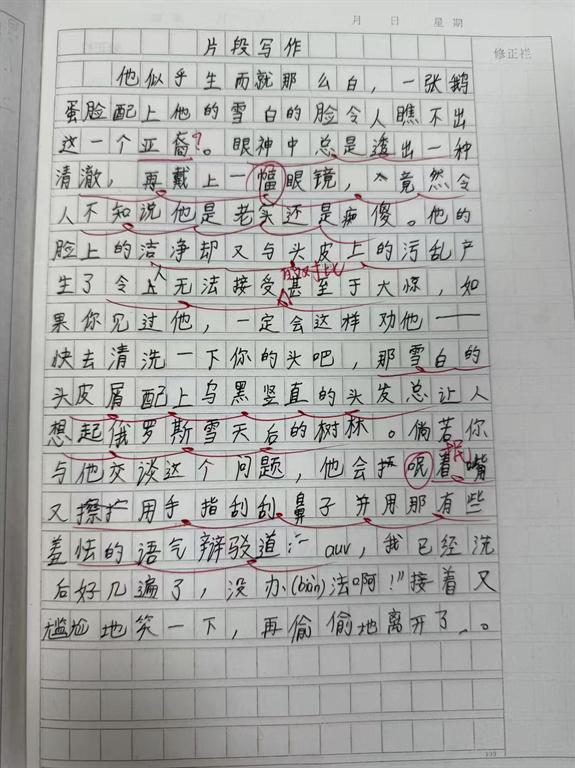 月 日 星期
修正栏
片段写作
他似乎生而就那么白，一张鹅
蛋脸配上他的雪白的脸令人瞧不出
这一个亚裔?。眼神中总是透出一种
清澈，再戴上一幅眼镜，竟然令
人不知说他是老头还是痴傻。他的
脸上的洁净却又与头皮上的污乱产
生了令人无法接受甚至于大惊，如
果你见过他，一定会这样劝他——
快去清洗一下你的头吧，那雪白的
头皮屑配上乌黑竖直的头发总让人
想起俄罗斯雪天后的树林。倘若你
与他交谈这个问题，他会抿着嘴
又用手指刮刮鼻子并用那有些
羞怯的语气辩驳道：“auv，我已经洗
后好几遍了，没办(bàn)法啊！”接着又
尴尬地笑一下，再偷偷地离开了。